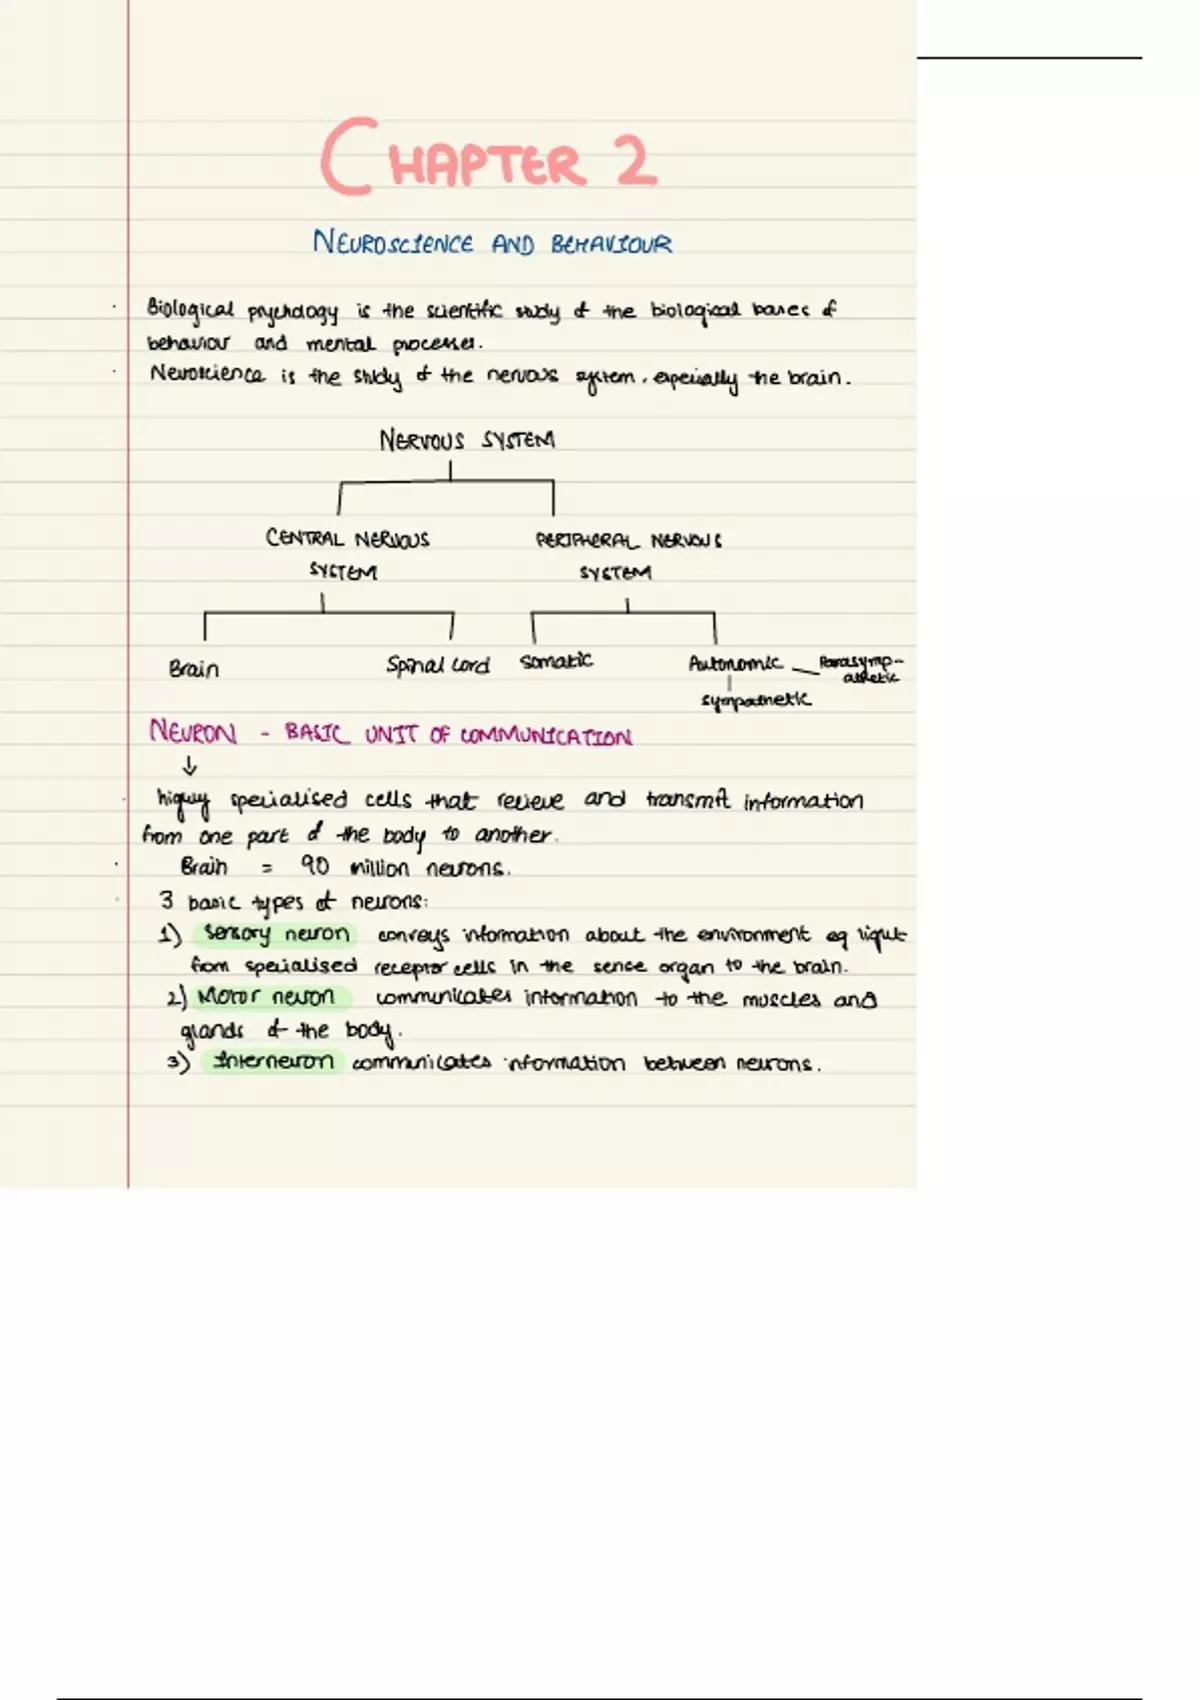 CHAPTER 2
NEUROSCIENCE AND BEHAVIOUR
Biological psychology is the scientific study of the biological bases of
behaviour and mental processes.
Neuroscience is the study of the nervous system, especially the brain.
NERVOUS SYSTEM
CENTRAL NERVOUS SYSTEM
PERIPHERAL NERVOUS SYSTEM
Brain
Spinal cord
Somatic
Autonomic
Parasymp-
athetic
sympathetic
NEURON - BASIC UNIT OF COMMUNICATION
↓
highly specialised cells that recieve and transmit information
from one part of the body to another.
Brain = 90 million neurons.
3 basic types of neurons:
1) Sensory neuron conveys information about the environment eg light
from specialised receptor cells in the sense organ to the brain.
2) Motor neuron communicates information to the muscles and
glands of the body.
3) Interneuron communicates information between neurons.